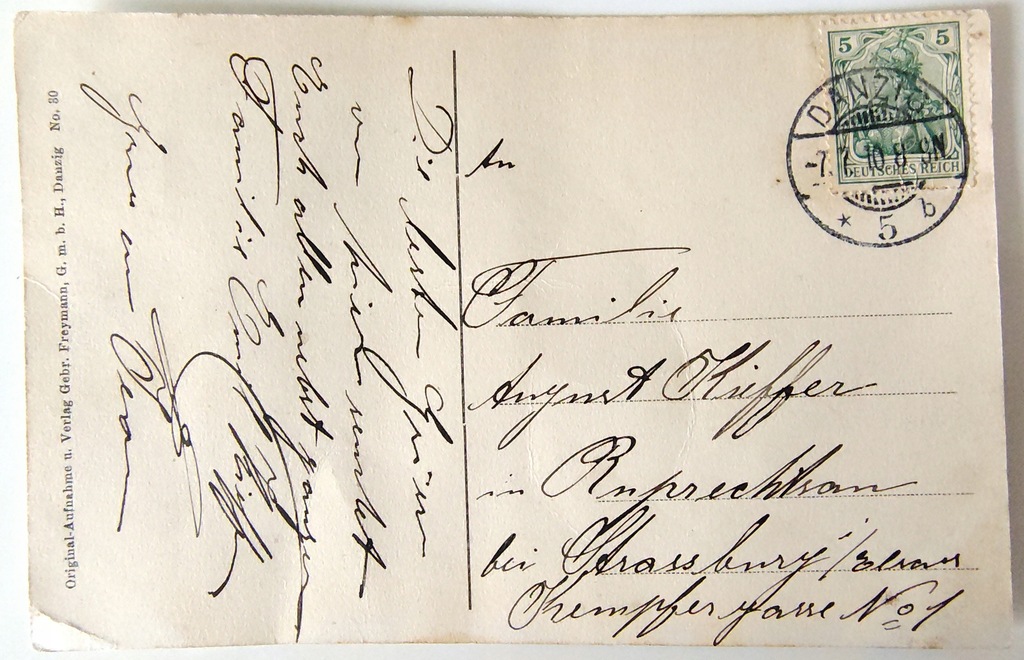 Original-Aufnahme u. Verlag Gebr. Freymann, G. m. b. H., Danzig No. 30
Die besten Grüsse
von hier sendet
Euch allen nebst ganzer
Familie
5 5
DEUTSCHES REICH
DANZIG
-7.7.10.8-9N.
* 5 b
An
Familie
August Kieffer
in Ruprechtsau
bei Strassburg / Elsass
Kempfergasse No 1